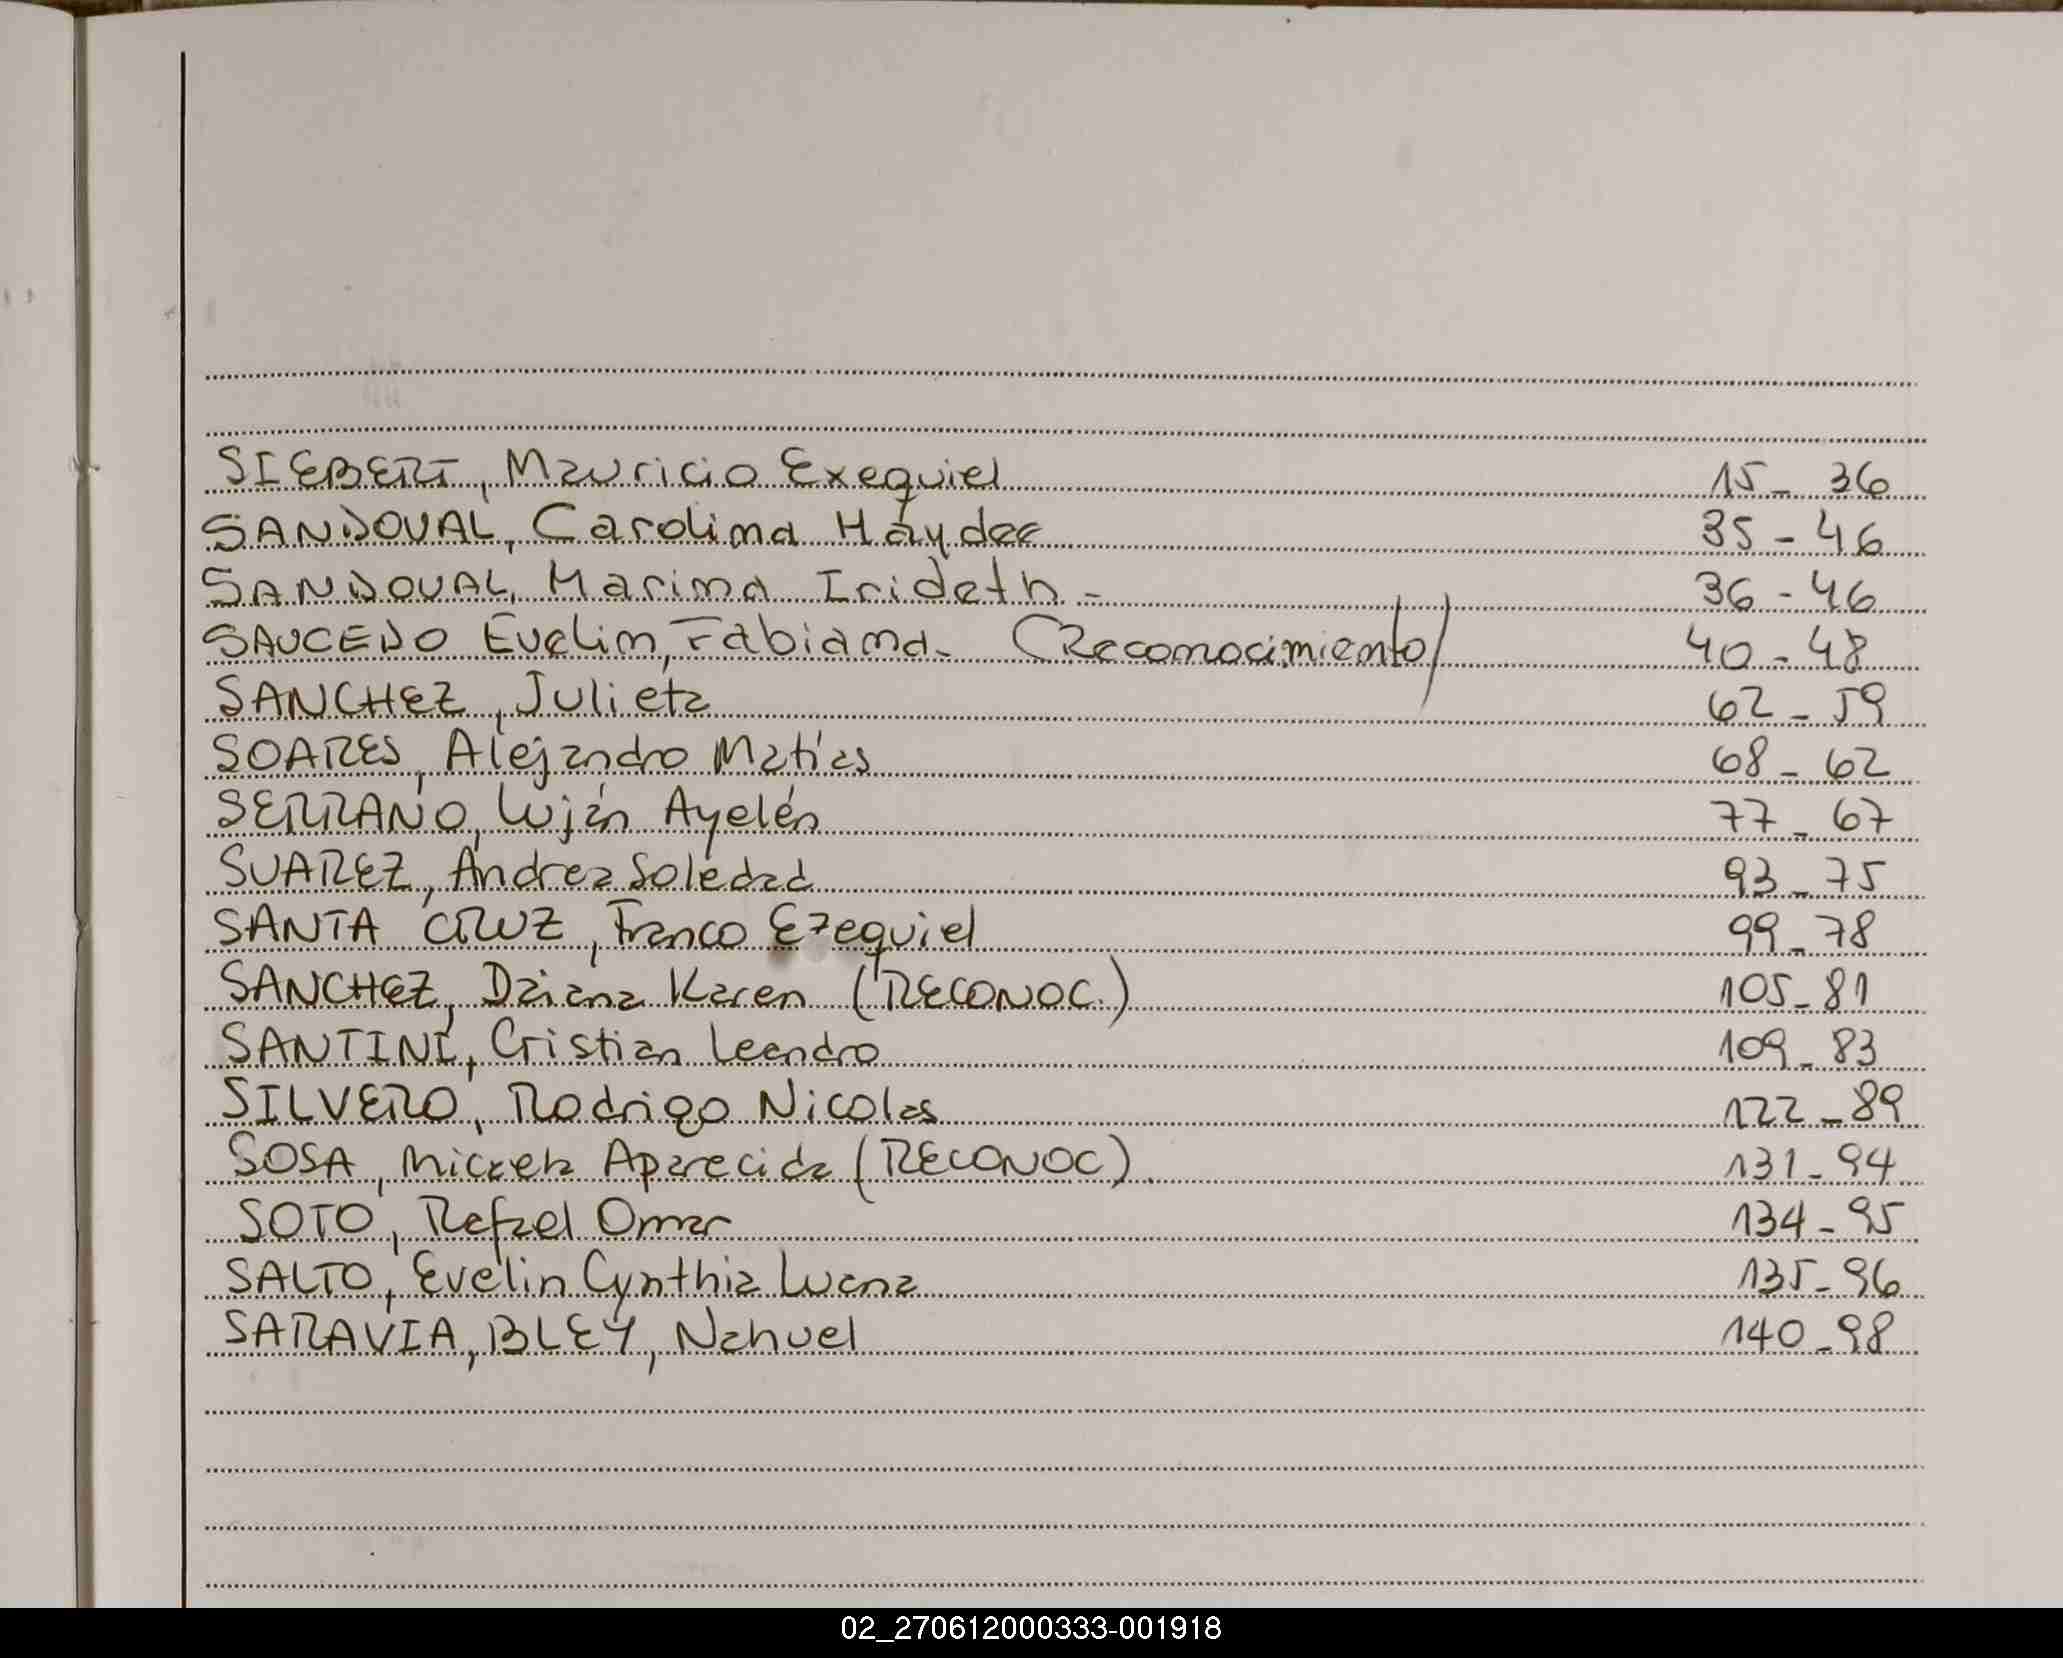 SIEBERT, Mauricio Exequiel 15_ 36
SANDOVAL, Carolina Haydee 35 - 46
SANDOVAL, Marina Irideth - 36 - 46
SAUCEDO Evelin, Fabiana. (Reconocimiento) 40 - 48
SANCHEZ, Julieta 62 - 59
SOARES, Alejandro Matías 68 - 62
SERRANO, Luján Ayelén 77 - 67
SUAREZ, Andrea Soledad 93 - 75
SANTA CRUZ, Franco Ezequiel 99 - 78
SANCHEZ, Daiana Karen (RECONOC.) 105 - 81
SANTINI, Cristian Leandro 109 - 83
SILVERO, Rodrigo Nicolas 122 - 89
SOSA, Micaela Aparecida (RECONOC). 131 - 94
SOTO, Rafael Omar 134 - 95
SALTO, Evelin Cynthia Luana 135 - 96
SARAVIA, BLEY, Nahuel 140 - 98
02_270612000333-001918